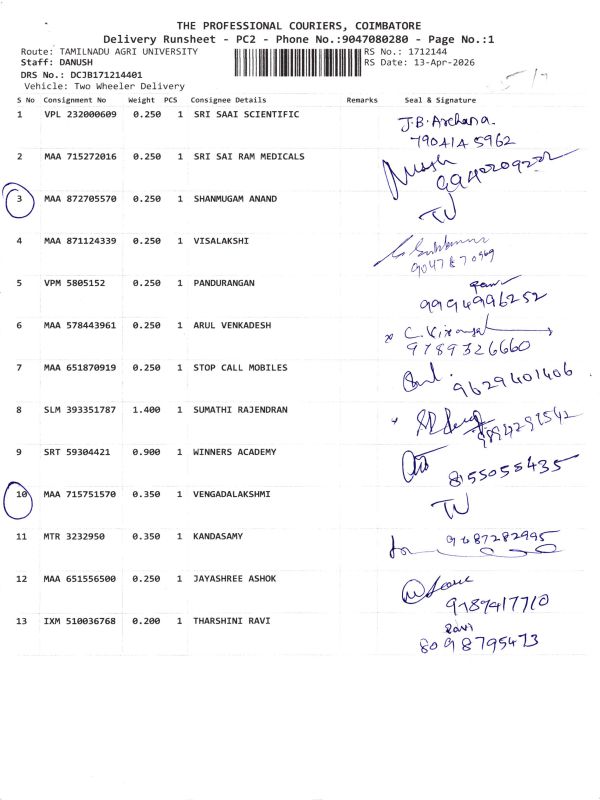 THE PROFESSIONAL COURIERS, COIMBATORE
Delivery Runsheet - PC2 - Phone No.:9047080280 - Page No.:1
Route: TAMILNADU AGRI UNIVERSITY RS No.: 1712144
Staff: DANUSH RS Date: 13-Apr-2026
DRS No.: DCJB171214401
Vehicle: Two Wheeler Delivery
S No Consignment No Weight PCS Consignee Details Remarks Seal & Signature
1 VPL 232000609 0.250 1 SRI SAAI SCIENTIFIC J.B. Archana.
790414 5962
2 MAA 715272016 0.250 1 SRI SAI RAM MEDICALS
3 MAA 872705570 0.250 1 SHANMUGAM ANAND
4 MAA 871124339 0.250 1 VISALAKSHI
5 VPM 5805152 0.250 1 PANDURANGAN
9994996252
6 MAA 578443961 0.250 1 ARUL VENKADESH
9789326660
7 MAA 651870919 0.250 1 STOP CALL MOBILES
9629401406
8 SLM 393351787 1.400 1 SUMATHI RAJENDRAN
9 SRT 59304421 0.900 1 WINNERS ACADEMY
8155055435
10 MAA 715751570 0.350 1 VENGADALAKSHMI
11 MTR 3232950 0.350 1 KANDASAMY 9687282995
12 MAA 651556500 0.250 1 JAYASHREE ASHOK
9789417710
13 IXM 510036768 0.200 1 THARSHINI RAVI Ravi
8098795473